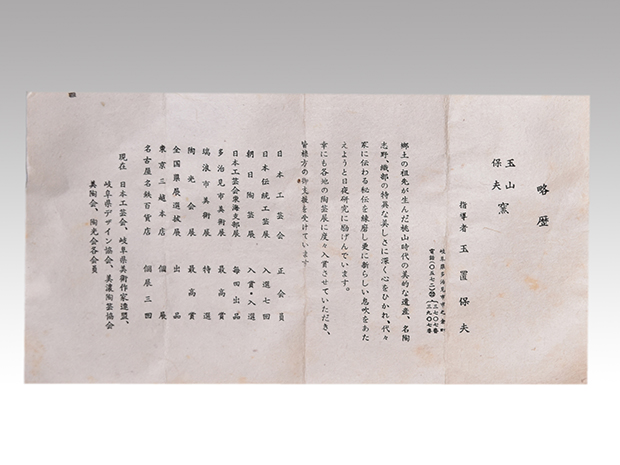 略歴
玉山窯
保夫
指導者 玉置保夫
岐阜県多治見市市之倉町
郷土の祖先が生んだ桃山時代の美的な遺産、名陶
志野、織部の特異な美しさに深く心をひかれ、代々
家に伝わる秘伝を練磨し更に新らしい息吹をあた
えようと日夜研究に励げんでいます。
幸にも各地の陶芸展に度々入賞させていただき、
皆様方の御支援を受けています。
日本工芸会 正会員
日本伝統工芸展 入選七回
朝日陶芸展 入賞・入選
日本工芸会東海支部展 毎回出品
多治見市美術展 最高賞
瑞浪市美術展 特選
陶光会展 最高賞
全国県展選抜展 出品
東京三越本店 個展
名古屋名鉄百貨店 個展三回
現在 日本工芸会、岐阜県美術作家連盟、
岐阜県デザイン協会、美濃陶芸協会
美陶会、陶光会各会員